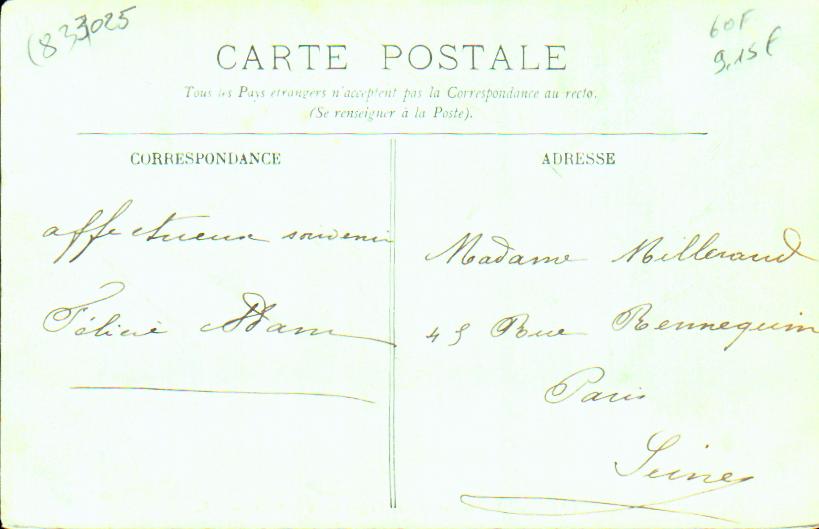 (833025
60F
9,15€
CARTE POSTALE
Tous les Pays étrangers n'acceptent pas la Correspondance au recto.
(Se renseigner à la Poste).
CORRESPONDANCE
affectueux souvenir
Félicie Adam
ADRESSE
Madame Millerand
45 Rue Rennequin
Paris
Seine